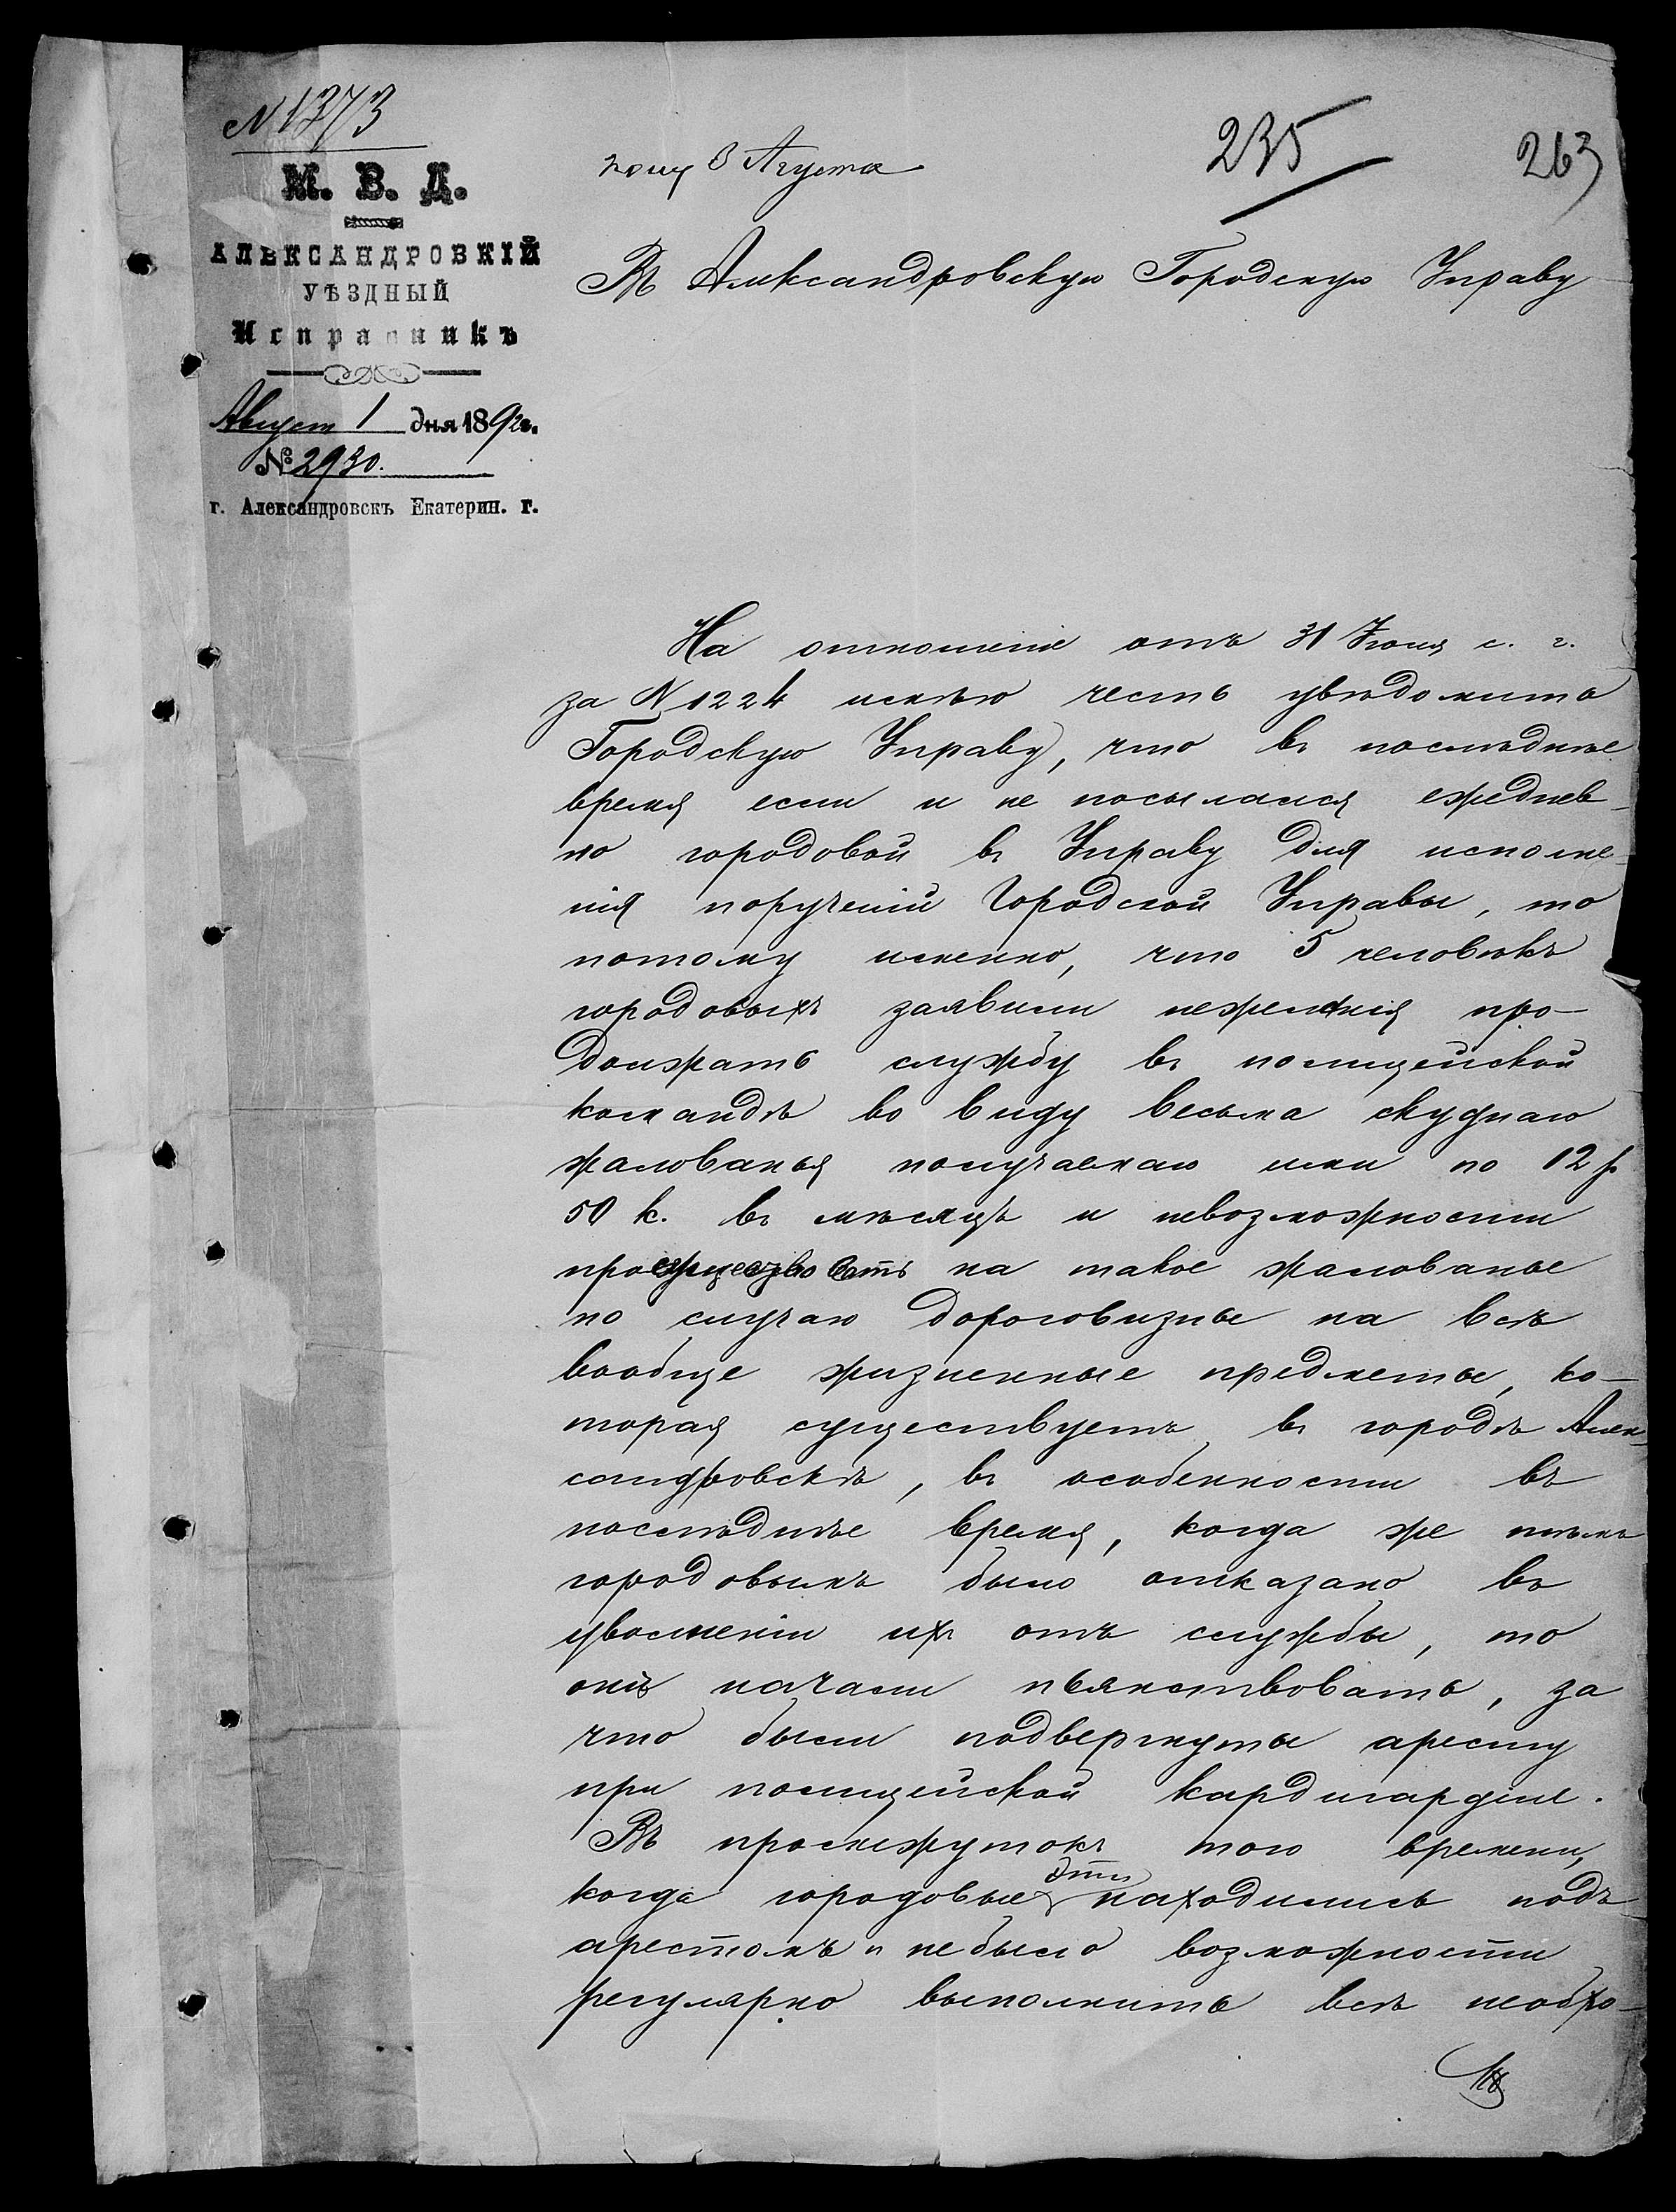 N 1373
М. В. Д.
АЛЕКСАНДРОВКІЙ
УѢЗДНЫЙ
Исправникъ
Август 1 дня 1892 г.
№ 2930.
г. Александровскъ Екатерин. г.
пол 3 Августа
235
263
Въ Александровскую Городскую Управу
На отношеніе отъ 31 Іюля с. г.
за N 1224 имѣю честь увѣдомить
Городскую Управу, что въ послѣднѣе
время если и не посылался ежеднев-
но городовой въ Управу для исполне-
нія порученій Городской Управы, то
потому именно, что 5 человѣкъ
городовыхъ заявили нежеланія про-
должать службу въ полицейской
командѣ во виду весьма скуднаго
жалованья получаемаго ими по 12 р.
50 к. въ мѣсяцъ и невозможности
просуществовать на такое жалованье
по случаю дороговизны на всѣ
вообще жизненные предметы, ко-
торая существуетъ въ городѣ Алек-
сандровскѣ, въ особенности въ
послѣднѣе время, когда же тѣмъ
городовымъ было отказано въ
увольненіи ихъ отъ службы, то
они начали пьянствовать, за
что были подвергнуты аресту
при полицейской кардигардіи.
Въ промежутокъ того времени,
когда городовые эти находились подъ
арестомъ и не было возможности
регулярно выполнить всѣ необхо-